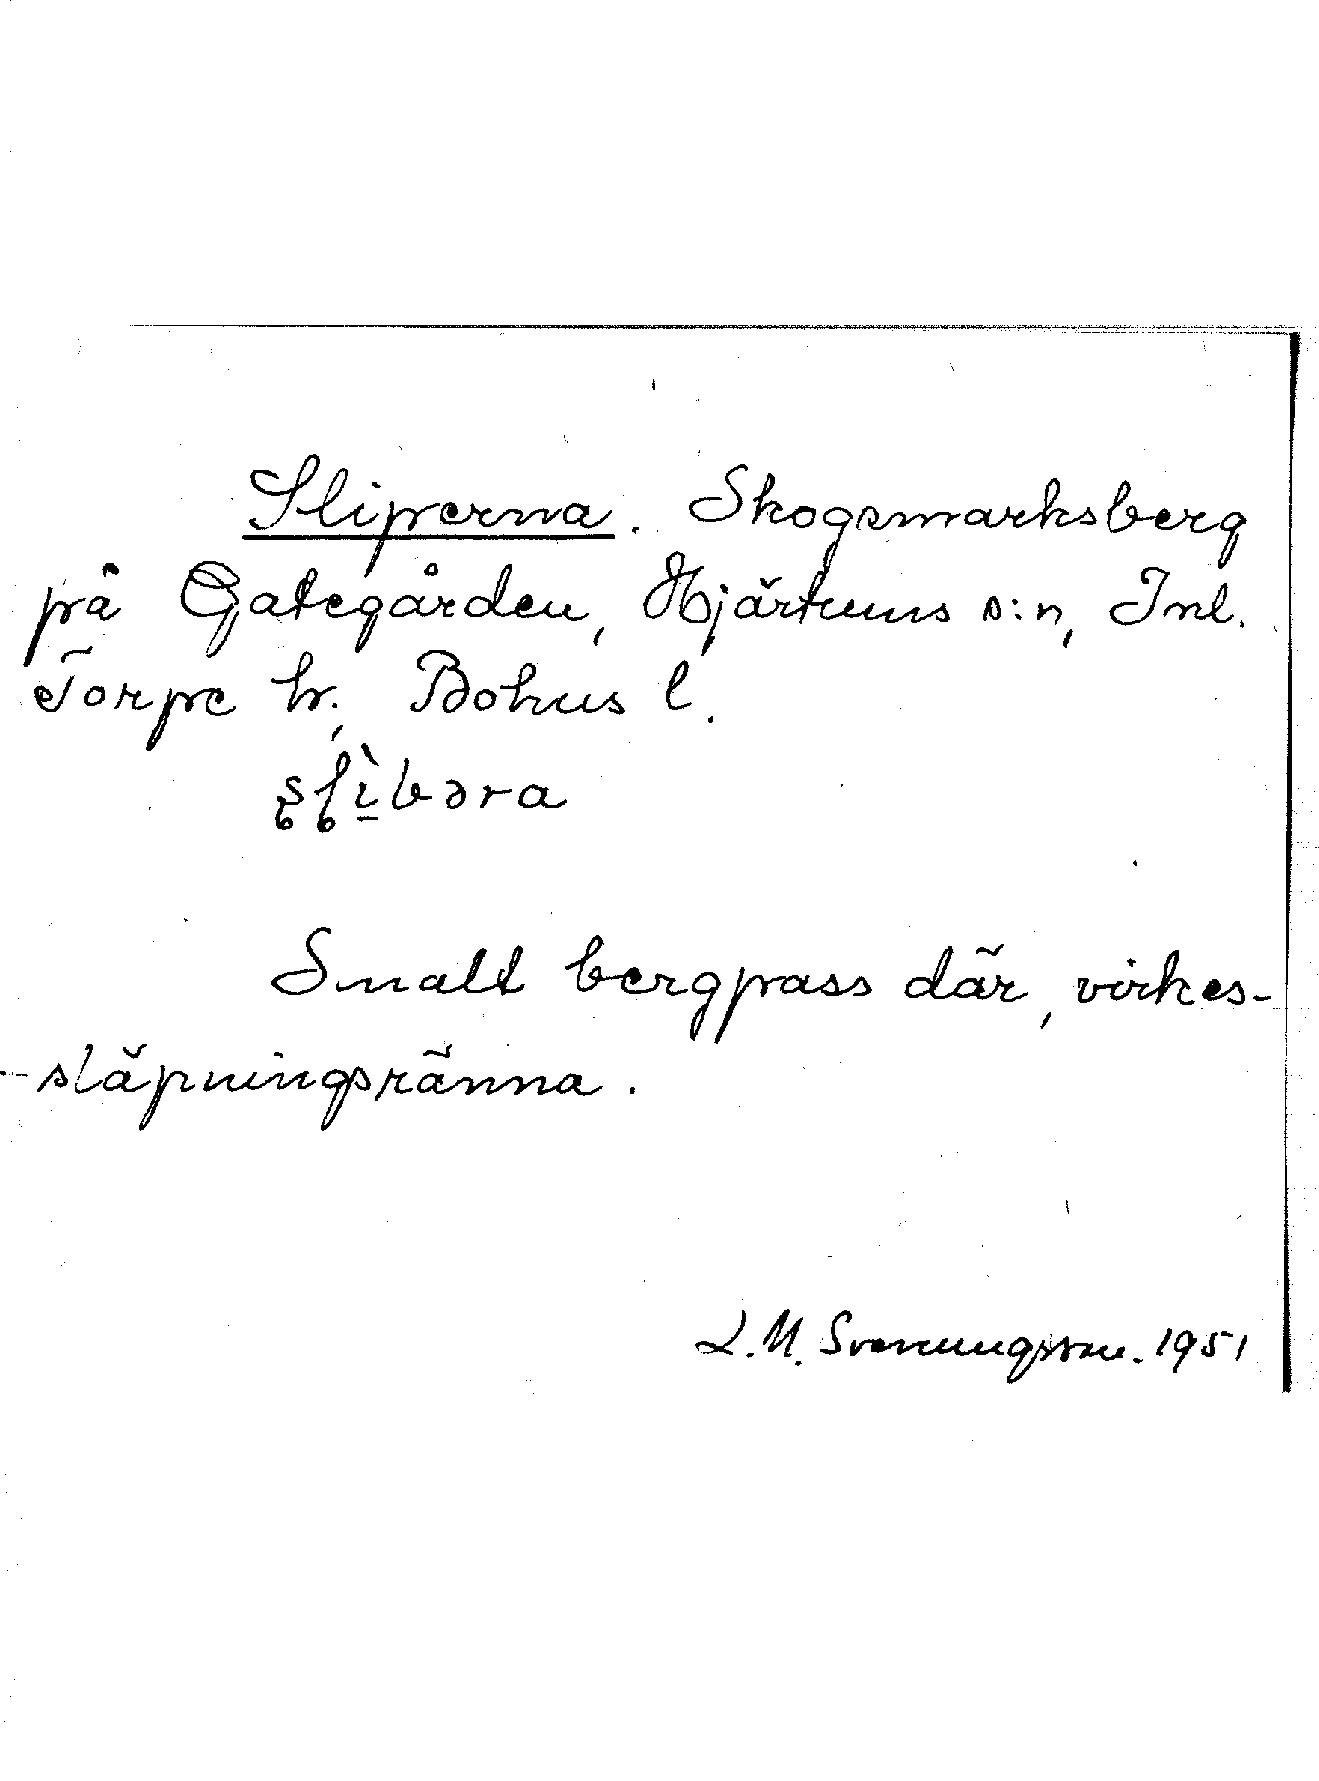 Sliperna. Skogsmarksberg
på Gategården, Hjärtums s:n, Inl.
Torpe hr., Bohus l.
ʂɭìbəra
Smalt bergpass där, virkes-
släpningsränna.
L. M. Svenungsson. 1951